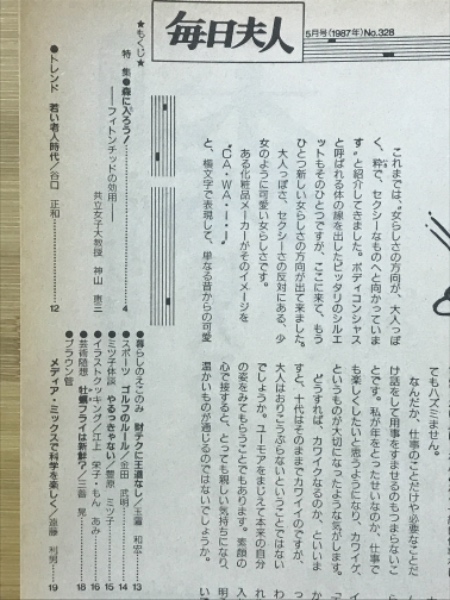 毎日夫人
5月号(1987年)No.328
★もくじ★
特集●森に入ろう!
――フィトンチッドの効用――
共立女子大教授 神山 恵三 4
●トレンド 若い老人時代/谷口 正和 12
●暮らしのえこのみ 財テクに王道なし/玉置 和宏 13
●スポーツ ゴルフのルール/金田 武明 14
●ミツ子体談 やるっきゃない/菅原 ミツ子 15
●イラストクッキング/江上 栄子・もん あみ 16
●芸術随想 牡蠣フライは新鮮?/三善 晃 18
●ブラウン管
メディア・ミックスで科学を楽しく/遠藤 利男 19
これまでは〝女らしさの方向が、大人っぽ
く、粋で、セクシーなものへと向かっていま
す〟と紹介してきました。ボディコンシャス
と呼ばれる体の線を出したピッタリのシルエ
ットもそのひとつですが、ここに来て、もう
ひとつ新しい女らしさの方向が出て来ました。
大人っぽさ、セクシーさの反対にある、少
女のように可愛い女らしさです。
ある化粧品メーカーがそのイメージを
〝CA・WA・I・I〟
と、横文字で表現して、単なる昔からの可愛
てもハズミません。
なんだか、仕事のことだけや必要なことだ
け話をして用事をすませるのもつまらないこ
とです。私が年をとったせいなのか、仕事で
も楽しくしたいと思うようになり、カワイゲ、
というものが大切になったような気がします。
どうすれば、カワイクなるのか、といいま
すと、十代はそのままでカワイイのですが、
大人はおりこうぶらないということではない
でしょうか。ユーモアをまじえて本来の自分
の姿をみてもらうことでもあります。素顔の
心で接すると、とっても親しい気持ちになり、
温かいものが通じるのではないでしょうか。